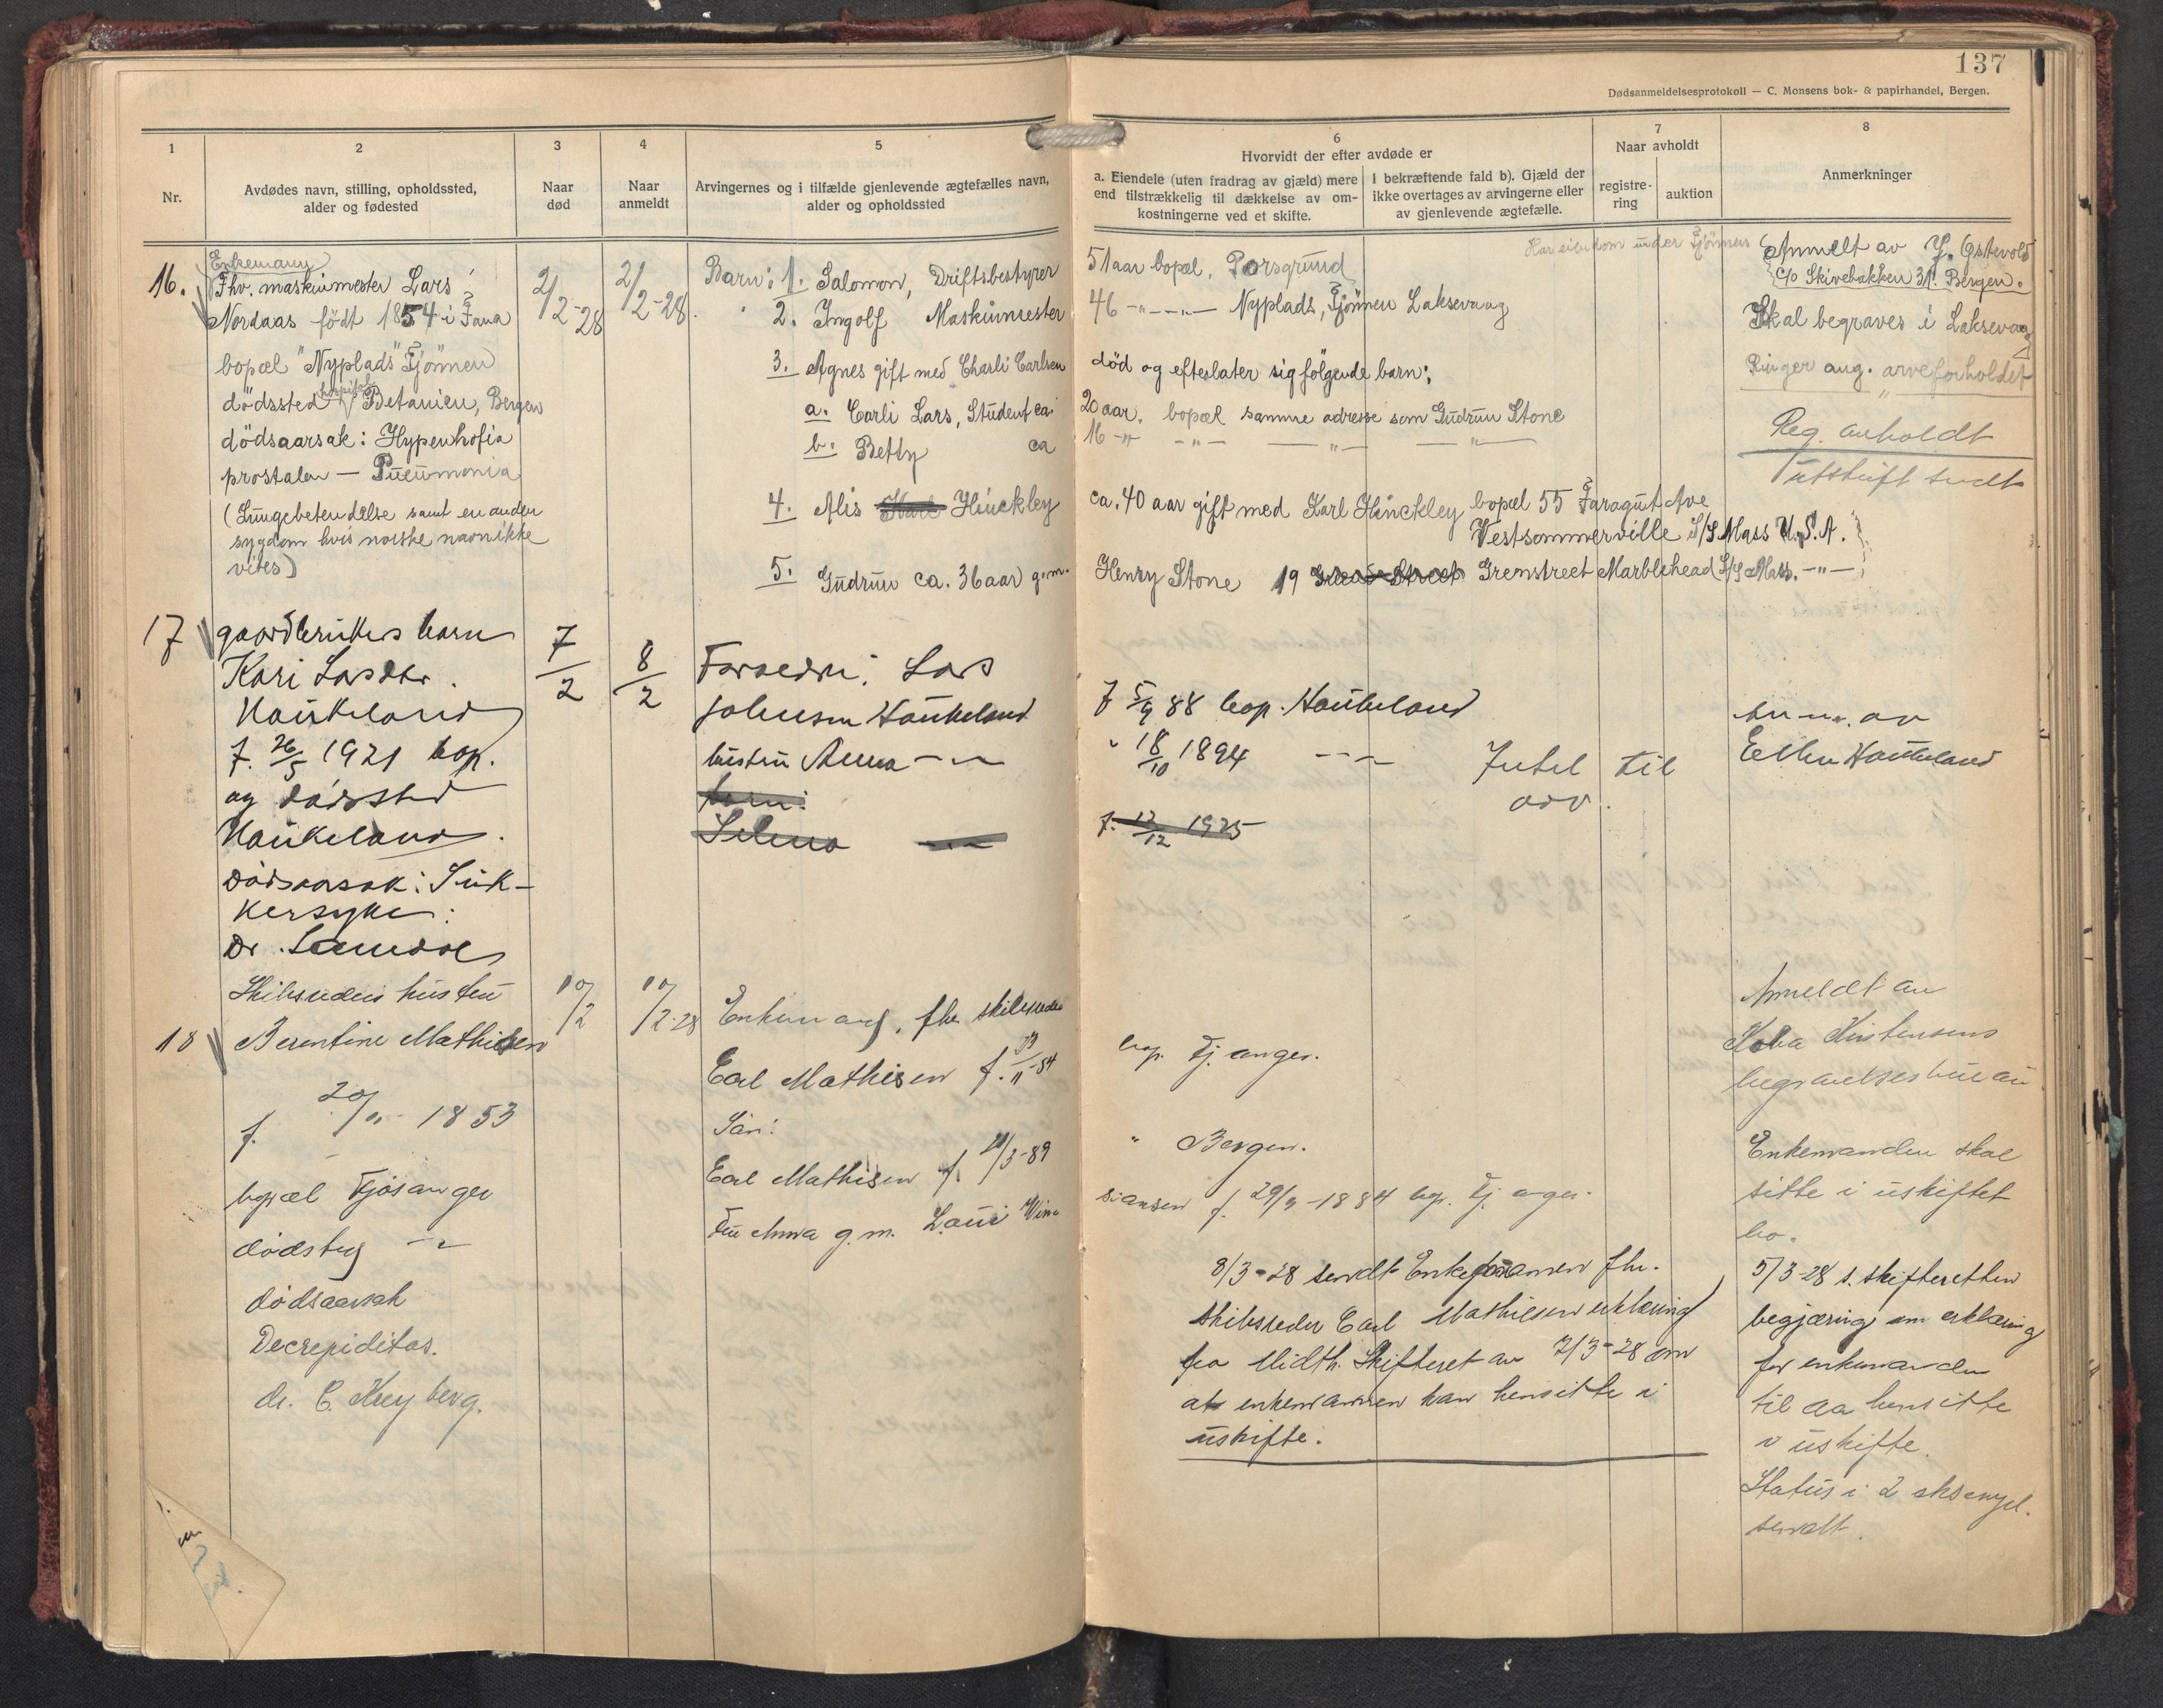 137
Dødsanmeldelsesprotokoll — C. Monsens bok- & papirhandel, Bergen.
1
2
3
4
5
6
7
8
Nr.
Avdødes navn, stilling, opholdssted,
alder og fødested
Naar
død
Naar
anmeldt
Arvingernes og i tilfælde gjenlevende ægtefælles navn,
alder og opholdssted
Hvorvidt der efter avdøde er
a. Eiendele (uten fradrag av gjæld) mere
end tilstrækkelig til dækkelse av om-
kostningerne ved et skifte.
I bekræftende fald b). Gjæld der
ikke overtages av arvingerne eller
av gjenlevende ægtefælle.
Naar avholdt
registre-
ring
auktion
Anmerkninger
16.
Enkemann
Fhv. maskinmester Lars
Nordaas født 1854 i Fana
bopæl "Nyplads" Fjönnen
dödssted hospital Betanien, Bergen
dödsaarsak: Hypenhofia
prostalen — Pneumonia
(Lungebetendelse samt en anden
sygdom hvis norske navn ikke
vites)
2/2-28
2/2-28.
Barn: 1. Salomon, Driftsbestyrer
2. Ingolf Maskinmester
3. Agnes gift med Charli Carlsen
a. Carli Lars, Student ca
b. Betty ca
4. Alis Karl Hinckley
5. Gudrun ca. 36 aar g.m.
Har eiendom under Fjönnen
51 aar bopæl, Porsgrund
46 -"- -"- Nyplads, Fjönnen Laksevaag
död og efterlater sig følgende barn:
20 aar. bopæl samme adresse som Gudrun Stone
16 -"- -"- -"- -"-
ca. 40 aar gift med Karl Hinckley bopæl 55 Faragut Ave
Vestsommerville S/S Mass U.S.A.
Henry Stone 19 Grenstreet Marblehead S/S Mass. -"-
Anmelt av Y. Østevold
c/o Skivebakken 31. Bergen.
Skal begraves i Laksevaag
Ringer ang. arveforholdet
Reg. avholdt
Utskrift sendt
17
gaardbrukers barn
Kari Larsdtr.
Haukeland
f. 26/5 1921 bop.
og dødssted
Haukeland.
Dødsaarsak: Suk-
kersyke:
Dr.
7/2
8/2
Foreldre: Lars
Johnsen Haukeland
hustru Anna -"-
barn:
Selma -"-
f 5/9 88 bop. Haukeland
" 18/10 1894 -"-
f. 12/12 1925
Intet til
arv.
anm. av
Haukeland
18
Skibsreders hustru
Berentine Mathisen
f. 20/11 - 1853
bopæl Fjösanger
dödssted -"-
dödsaarsak
Decrepiditas.
dr. C. Kreyberg.
10/2
10/2-28
Enkemand, fhv. skibsreder
Carl Mathisen f. /11-54
Sön:
Carl Mathisen f. /3-89
Fru Anna g.m. Lauri
bop. Fj.anger.
" Bergen.
siansen f. 29/9-1884 bop. Fj.anger.
8/3-28 sendt Enkemannen fhv.
skibsreder Carl Mathisen erklæring
fra Midth. Skifteret av 7/3-28 om
at enkemannen kan hensitte i
uskifte.
Anmeldt av
Kristensens
begravelsesbureau
Enkemanden skal
sitte i uskiftet
bo.
5/3-28 s. skifteretten
begjæring om erklæring
for enkemanden
til aa hensitte
i uskifte.
Status i 2 eksempl.
sendt.